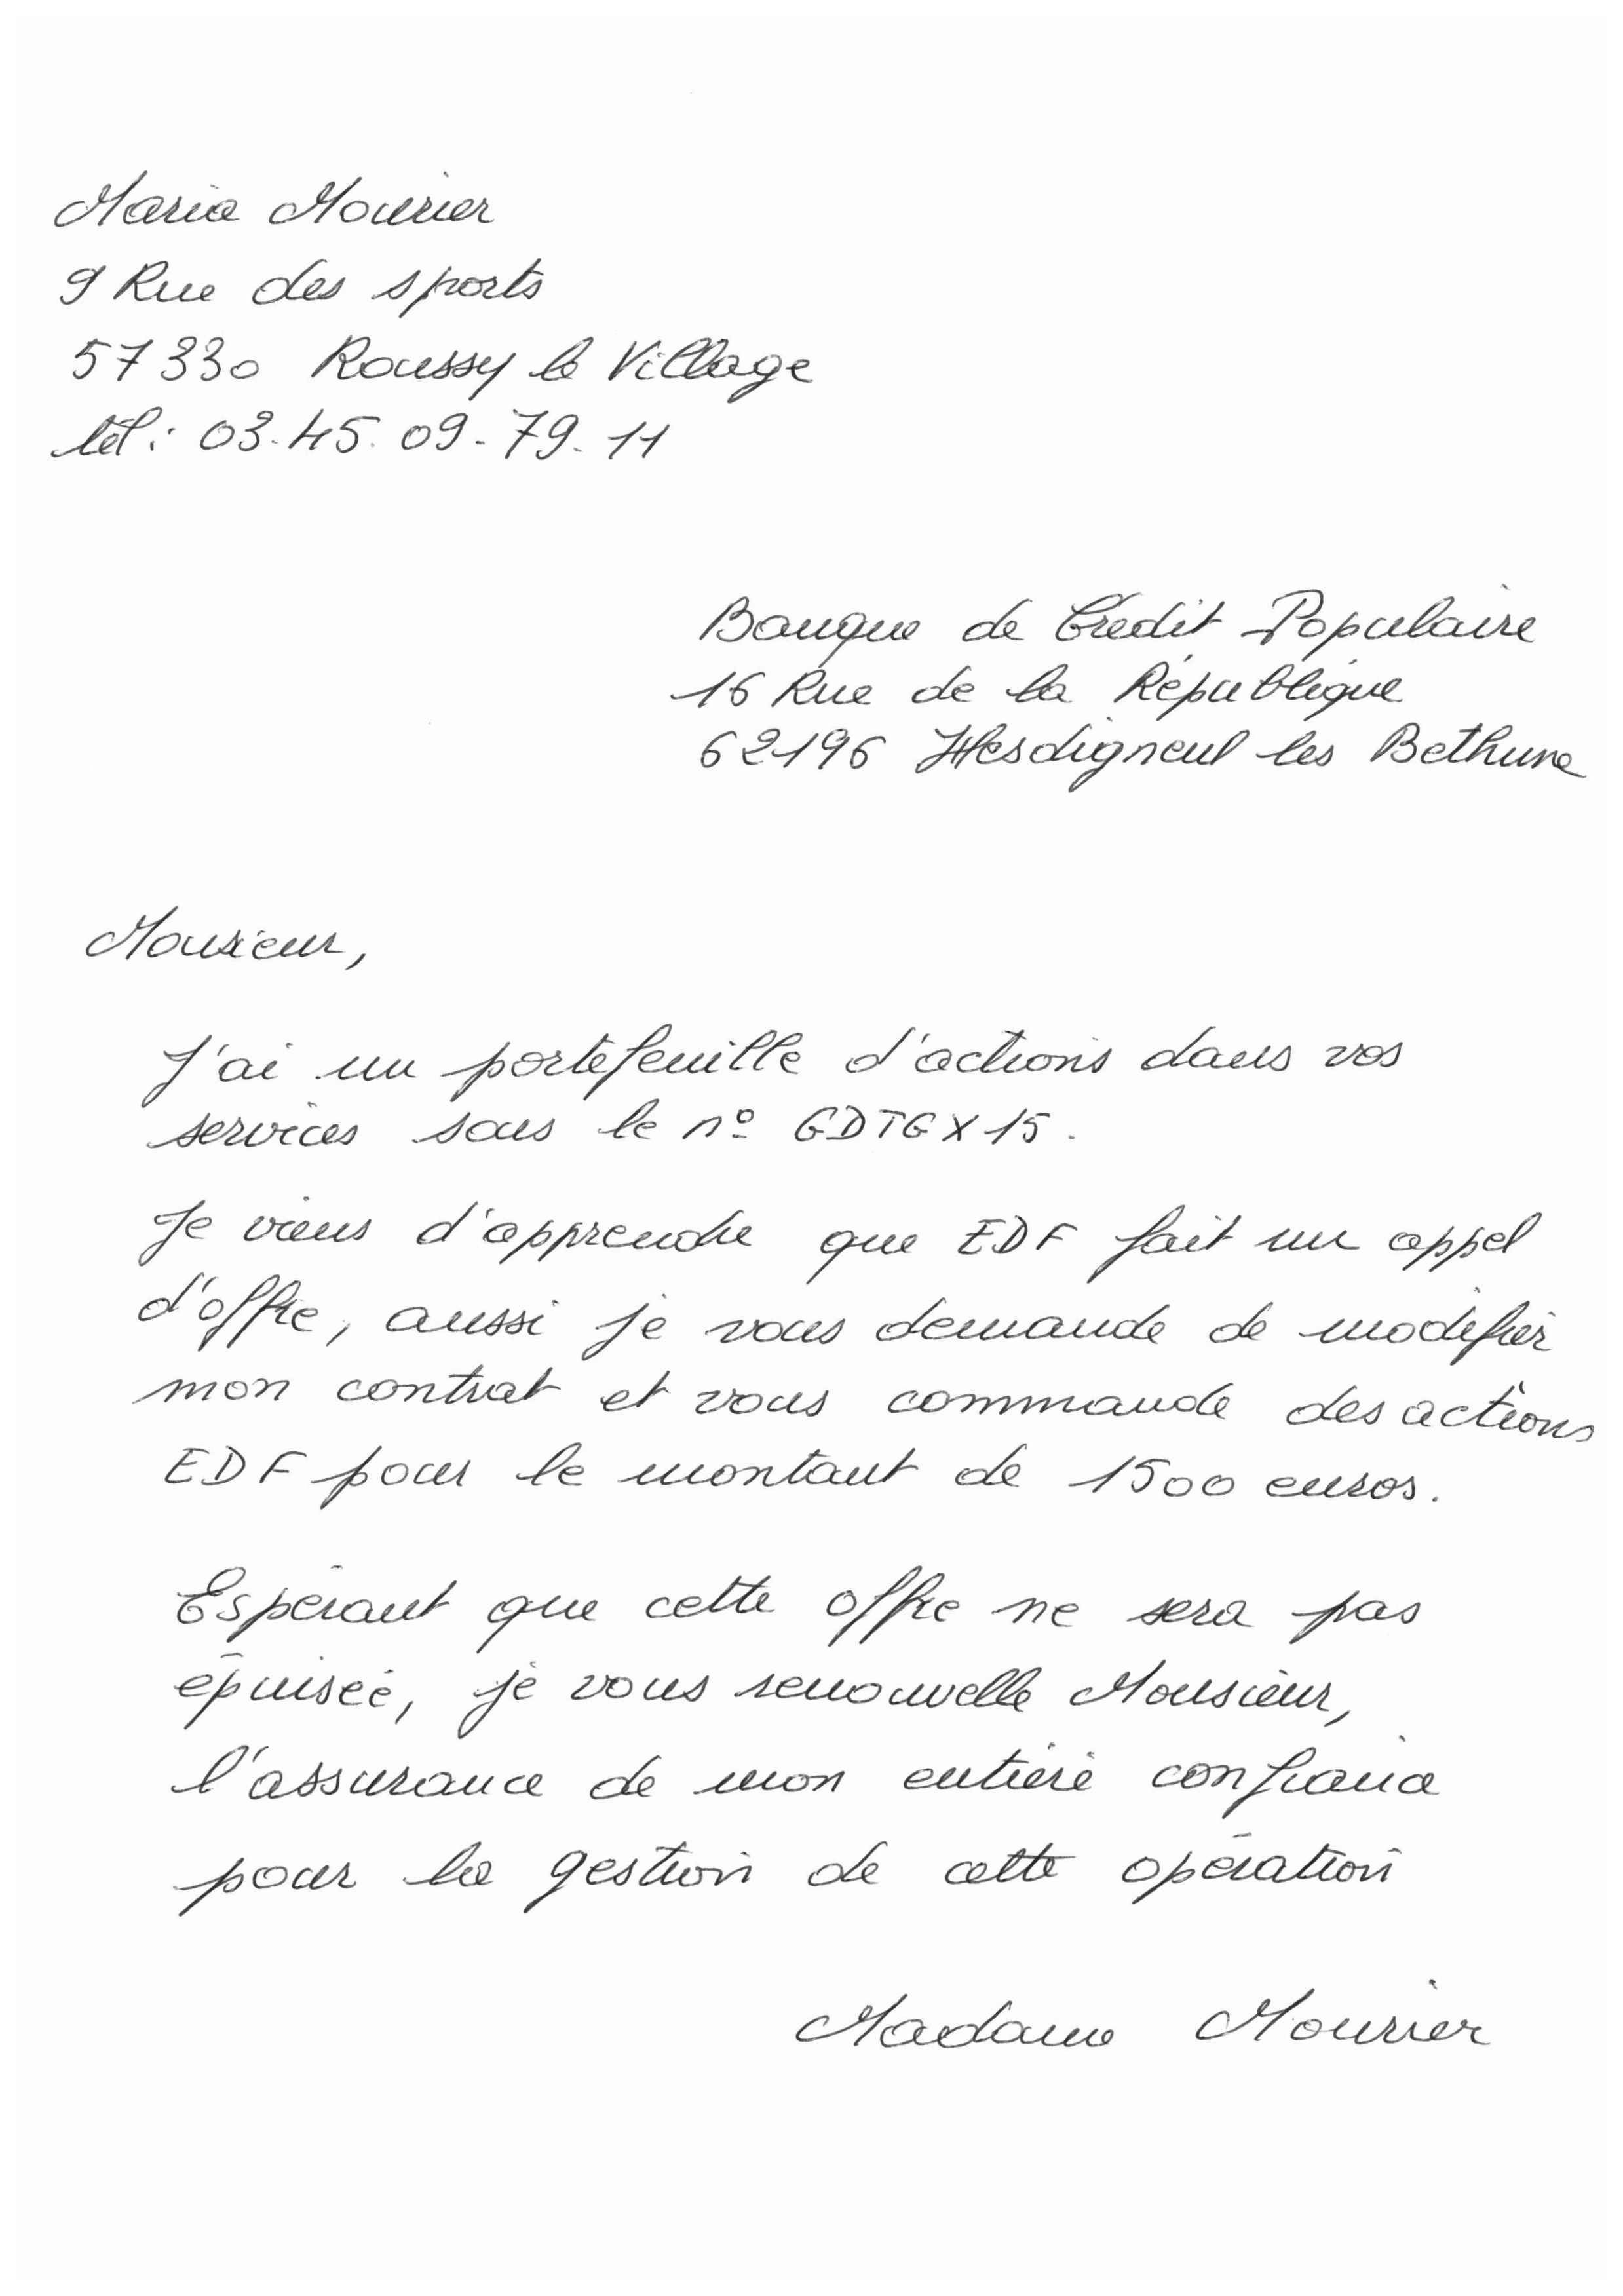 Maria Mourier
9 Rue des sports
57330 Roussy le Village
tél : 03.45.09.79.11
Banque de Crédit Populaire
16 Rue de la République
62196 Hesdigneul les Bethune
Monsieur,
J'ai un portefeuille d'actions dans vos
services sous le n° GDTGX15.
Je viens d'apprendre que EDF fait un appel
d'offre, aussi je vous demande de modifier
mon contrat et vous commande des actions
EDF pour le montant de 1500 euros.
Espérant que cette offre ne sera pas
épuisée, je vous renouvelle Monsieur,
l'assurance de mon entière confiance
pour la gestion de cette opération
Madame Mourier